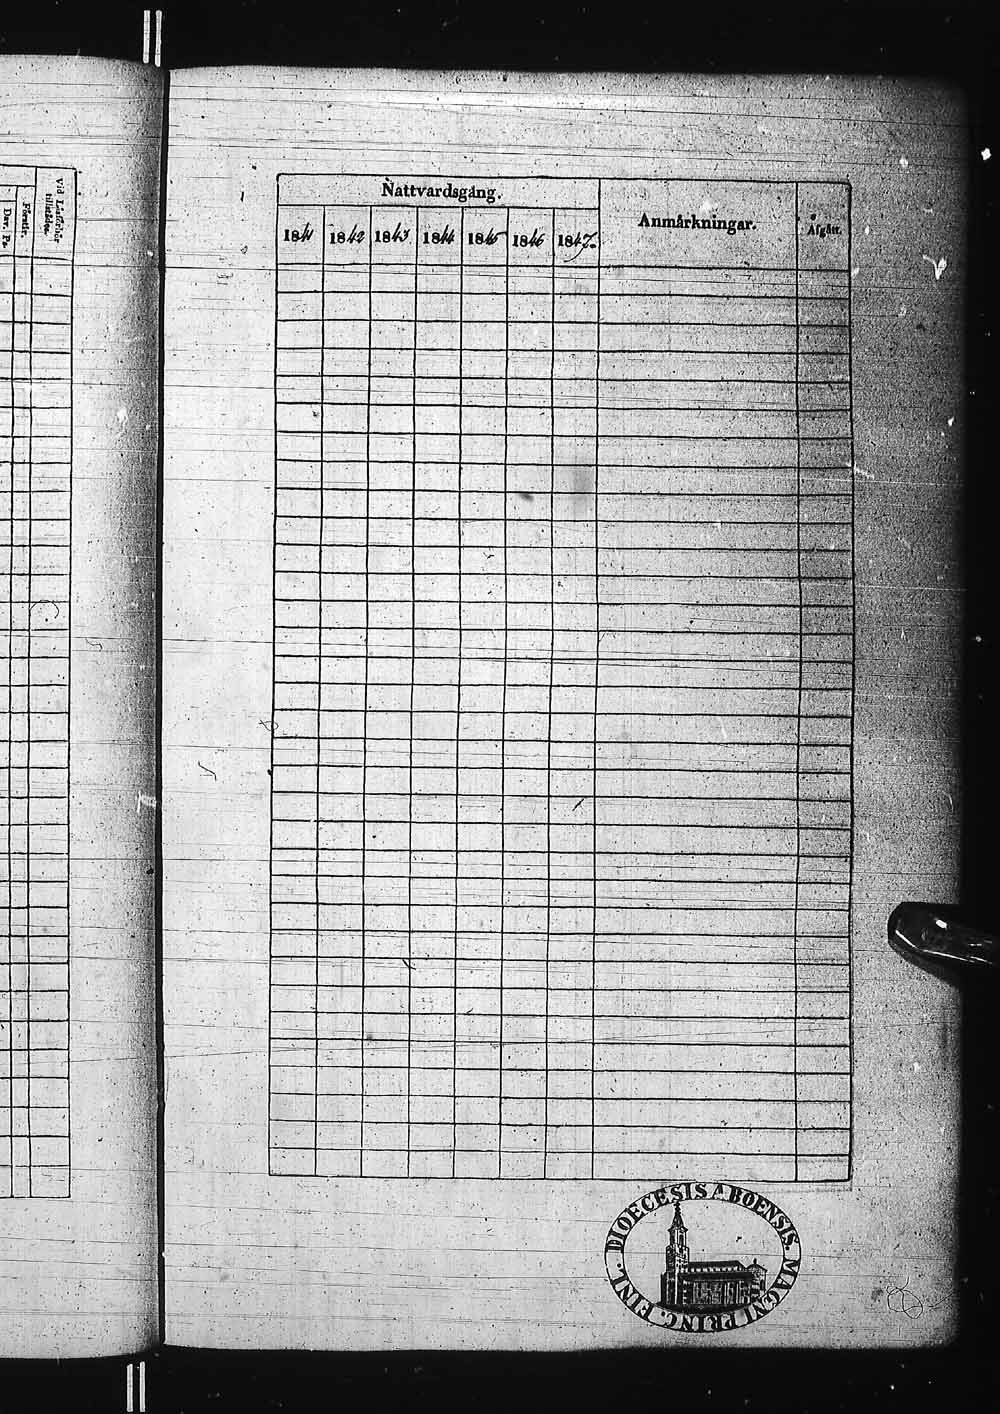 Vid Läsförhör
tillstädes.
Förstår.
Dav. Ps.
Nattvardsgång.
Anmärkningar.
Afgått.
1841 1842 1843 1844 1845 1846 1847.
DIOECESIS ABOENSIS. MAGNI PRINC. FINL.